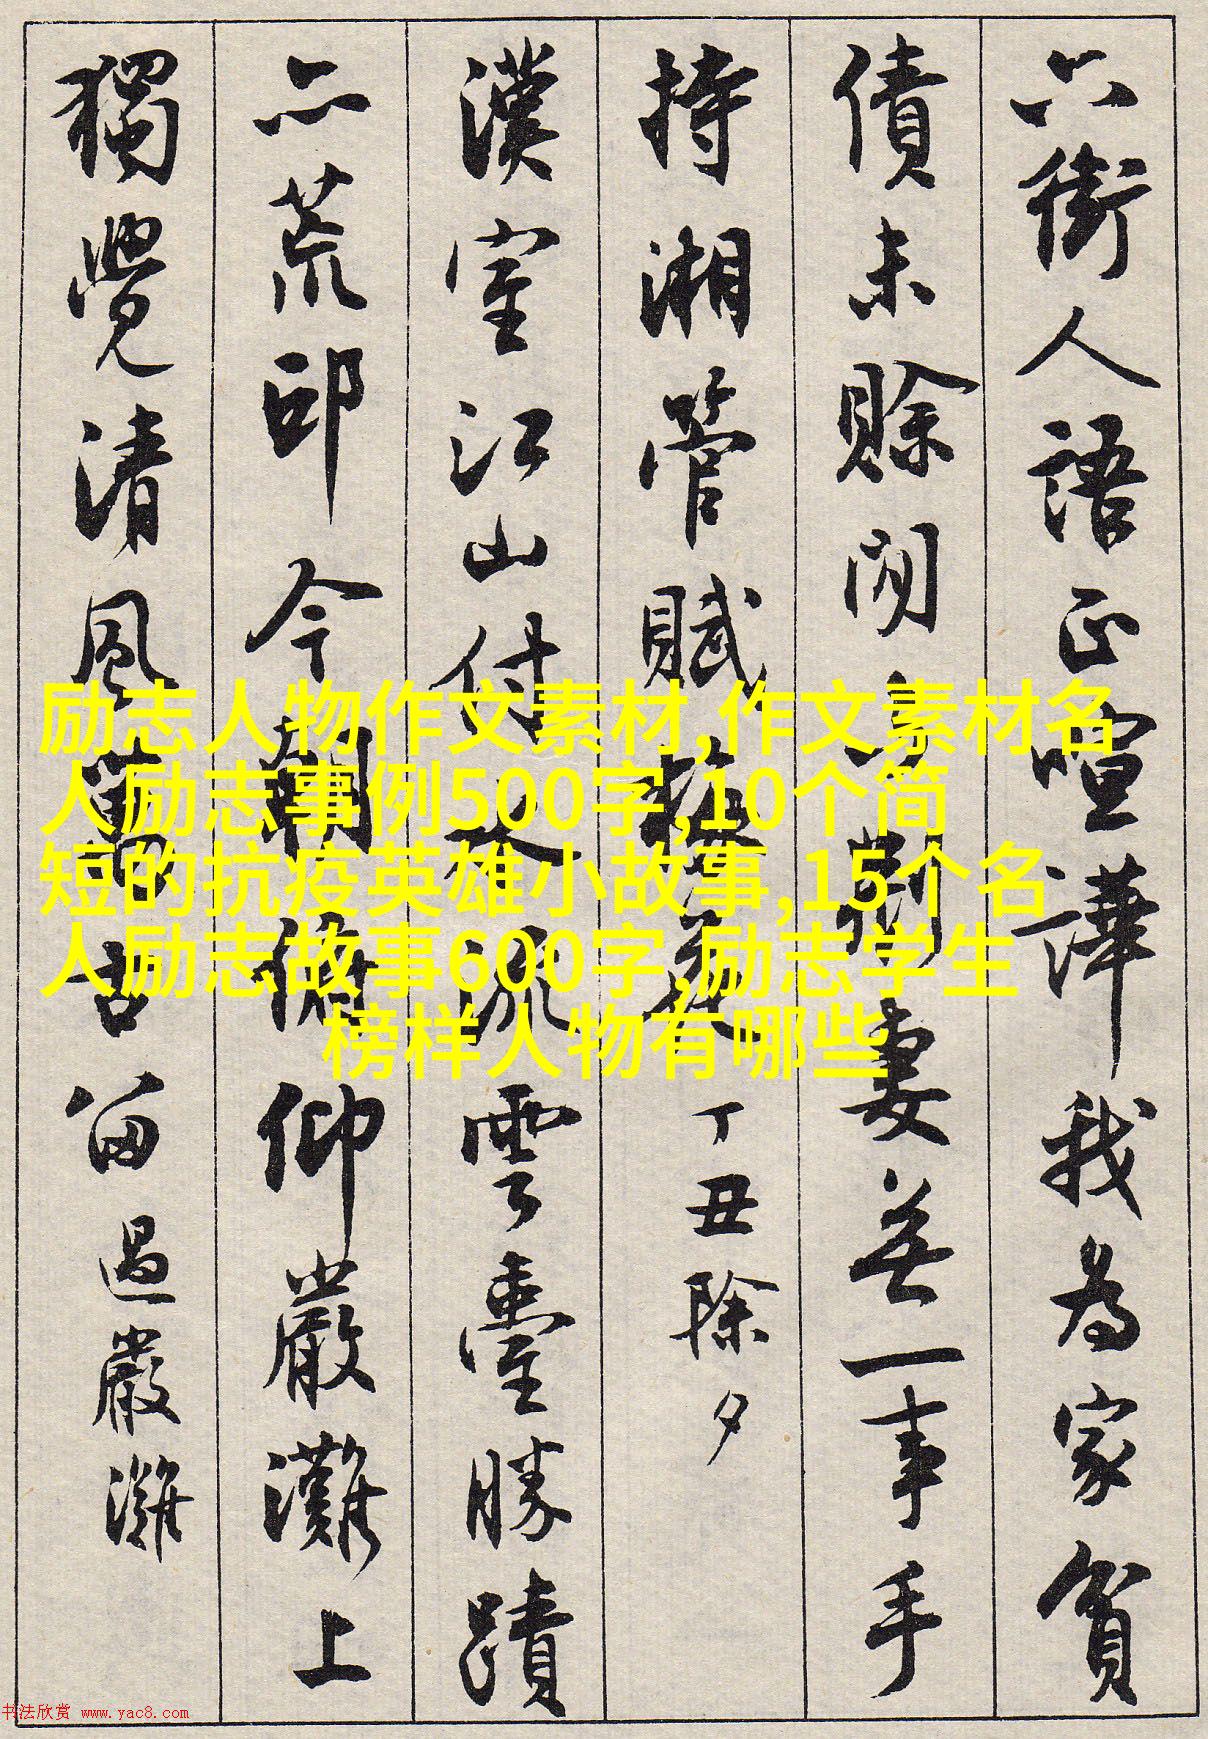 六街人語正喧譁我為家貧
債未賒閒與荊妻無一事手
持湘管賦梅花 丁丑除夕
漢室江山付水流雲臺勝蹟
亦荒邱今朝俯仰嚴灘上
獨覺清風萬古留 過嚴灘
励志人物作文素材,作文素材名
人励志事例500字,10个简
短的抗疫英雄小故事,15个名
人励志故事600字,励志学生
榜样人物有哪些
书法欣赏 www.yac8.com